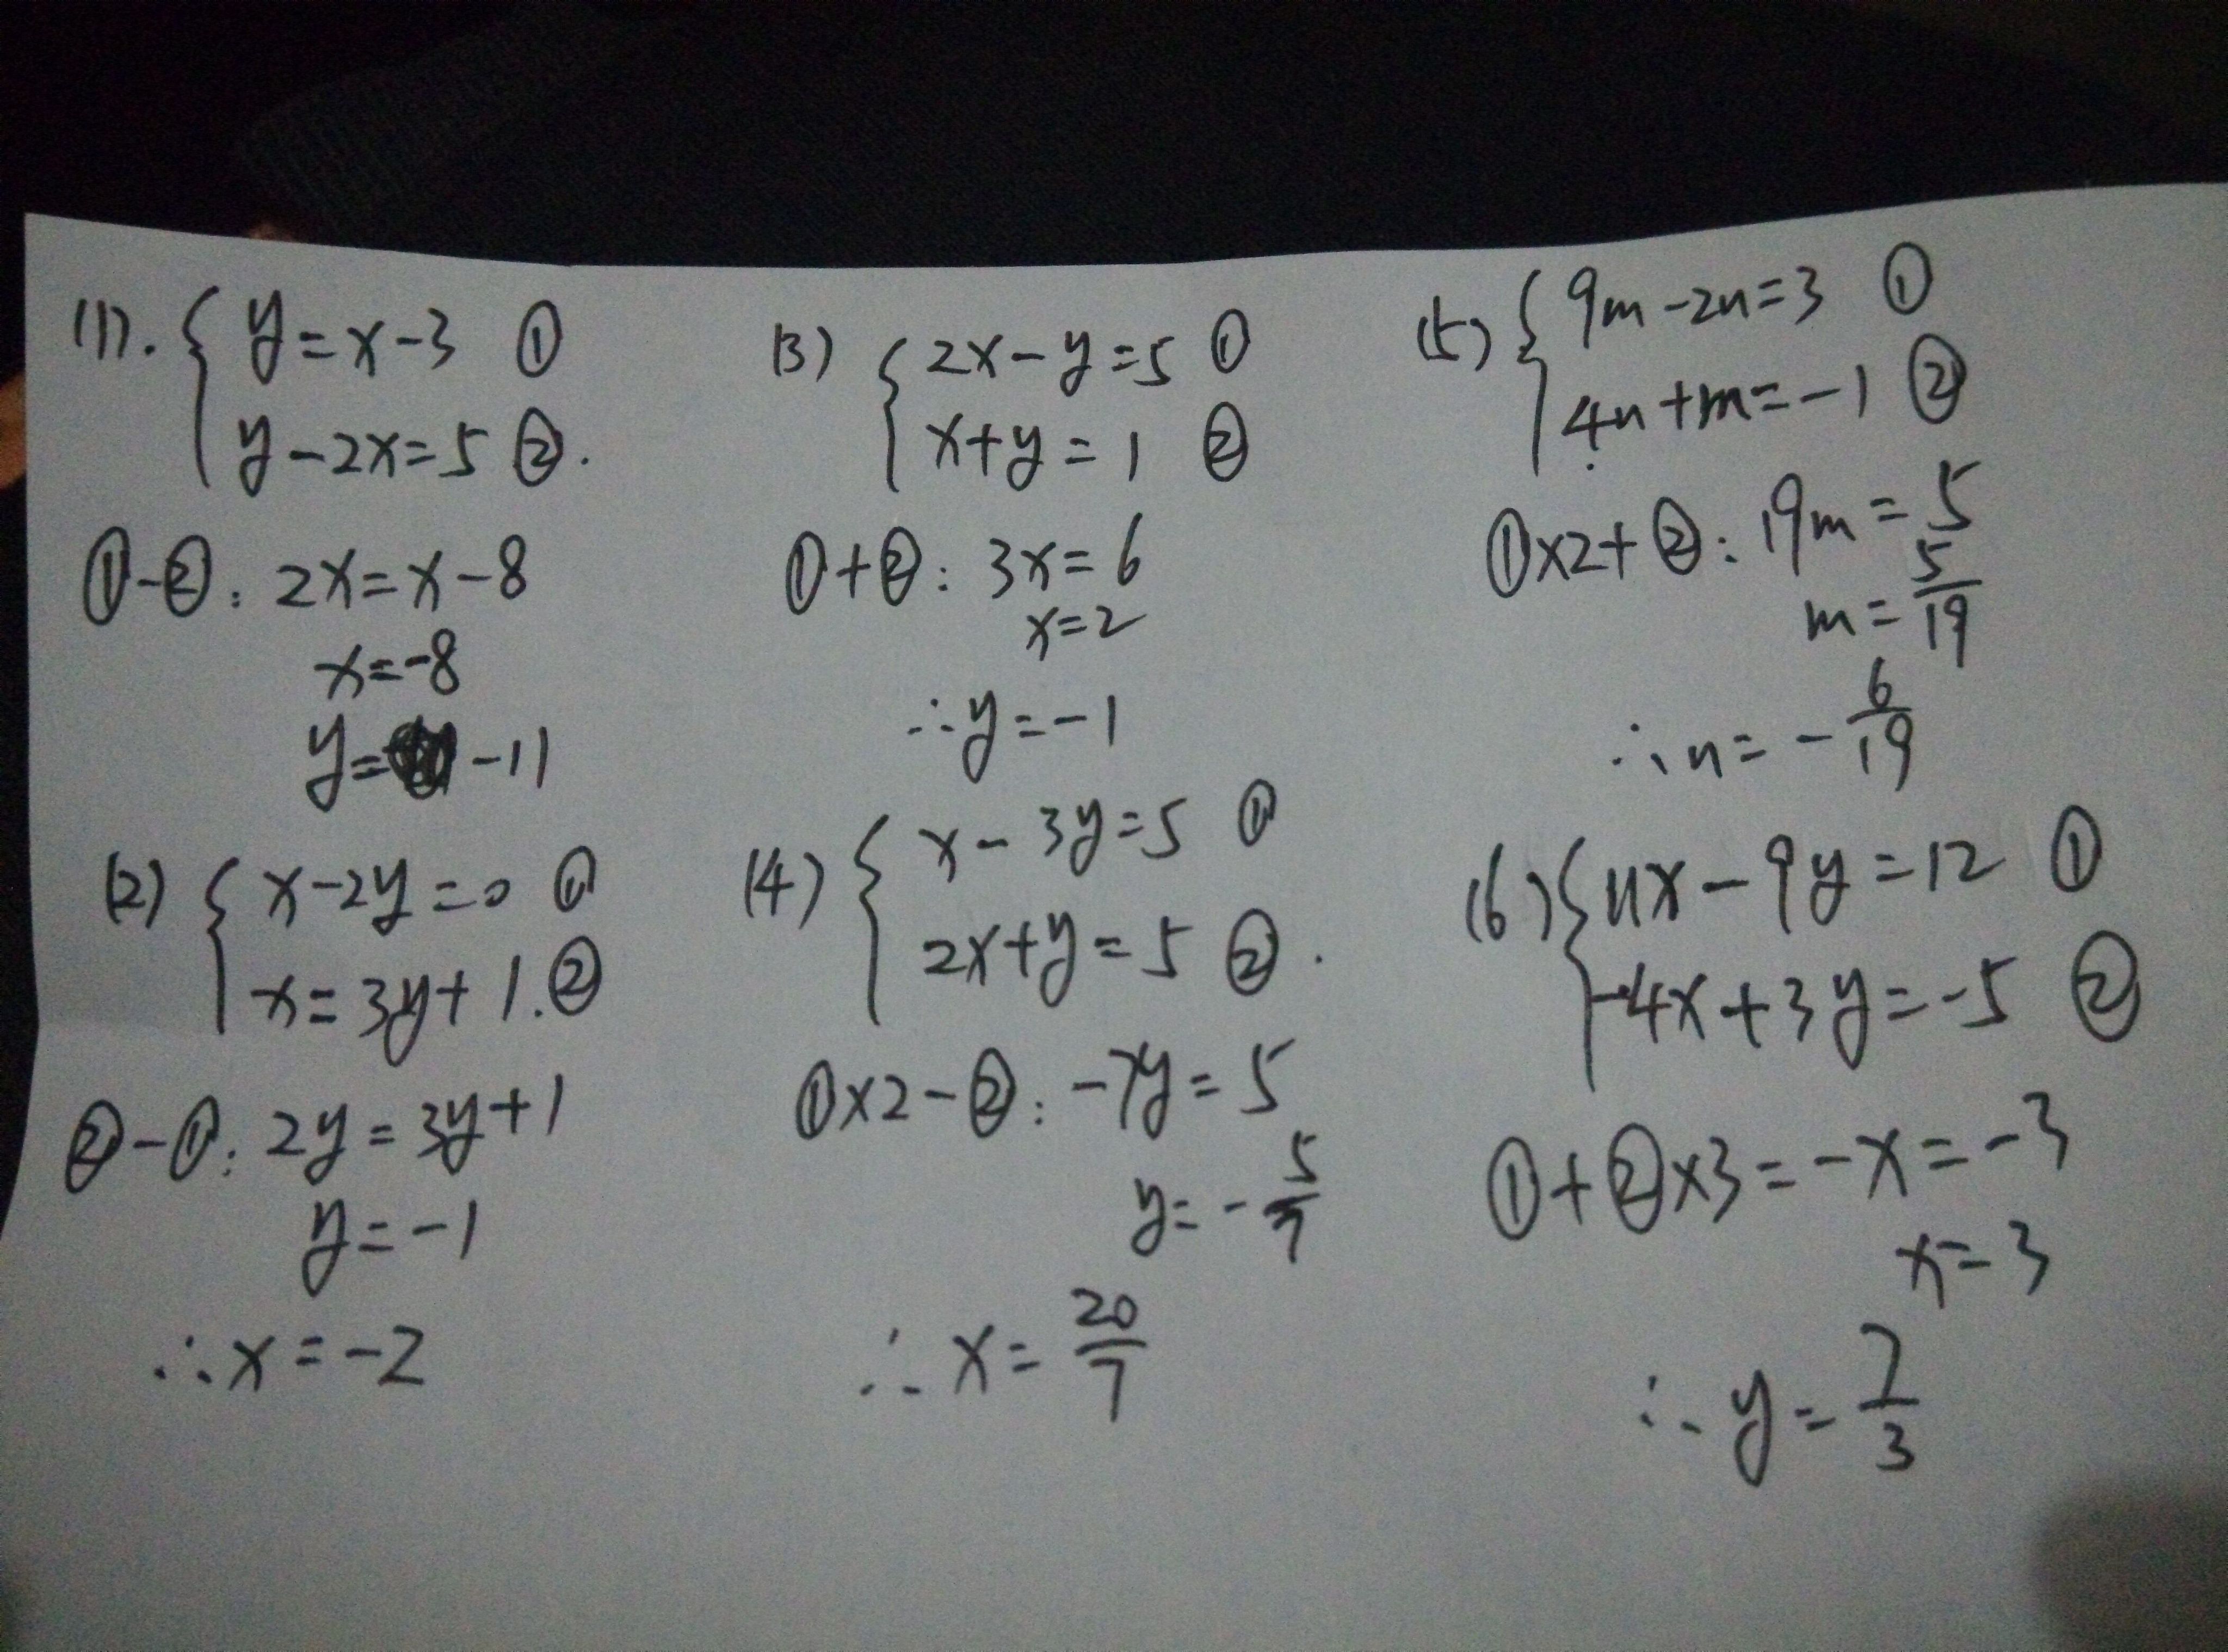 (1). { y=x-3 ①
y-2x=5 ②.
①-②: 2x=x-8
x=-8
y= -11
(2) { x-2y=0 ①
x=3y+1.②
②-①: 2y=3y+1
y=-1
∴x=-2
(3) { 2x-y=5 ①
x+y=1 ②
①+②: 3x=6
x=2
∴y=-1
(4) { x-3y=5 ①
2x+y=5 ②.
①×2-②: -7y=5
y=-5/7
∴x=20/7
(5) { 9m-2n=3 ①
4n+m=-1 ②
①×2+②: 19m=5
m=5/19
∴n=-6/19
(6) { 11x-9y=12 ①
-4x+3y=-5 ②
①+②×3=-x=-3
x=3
∴y=7/3